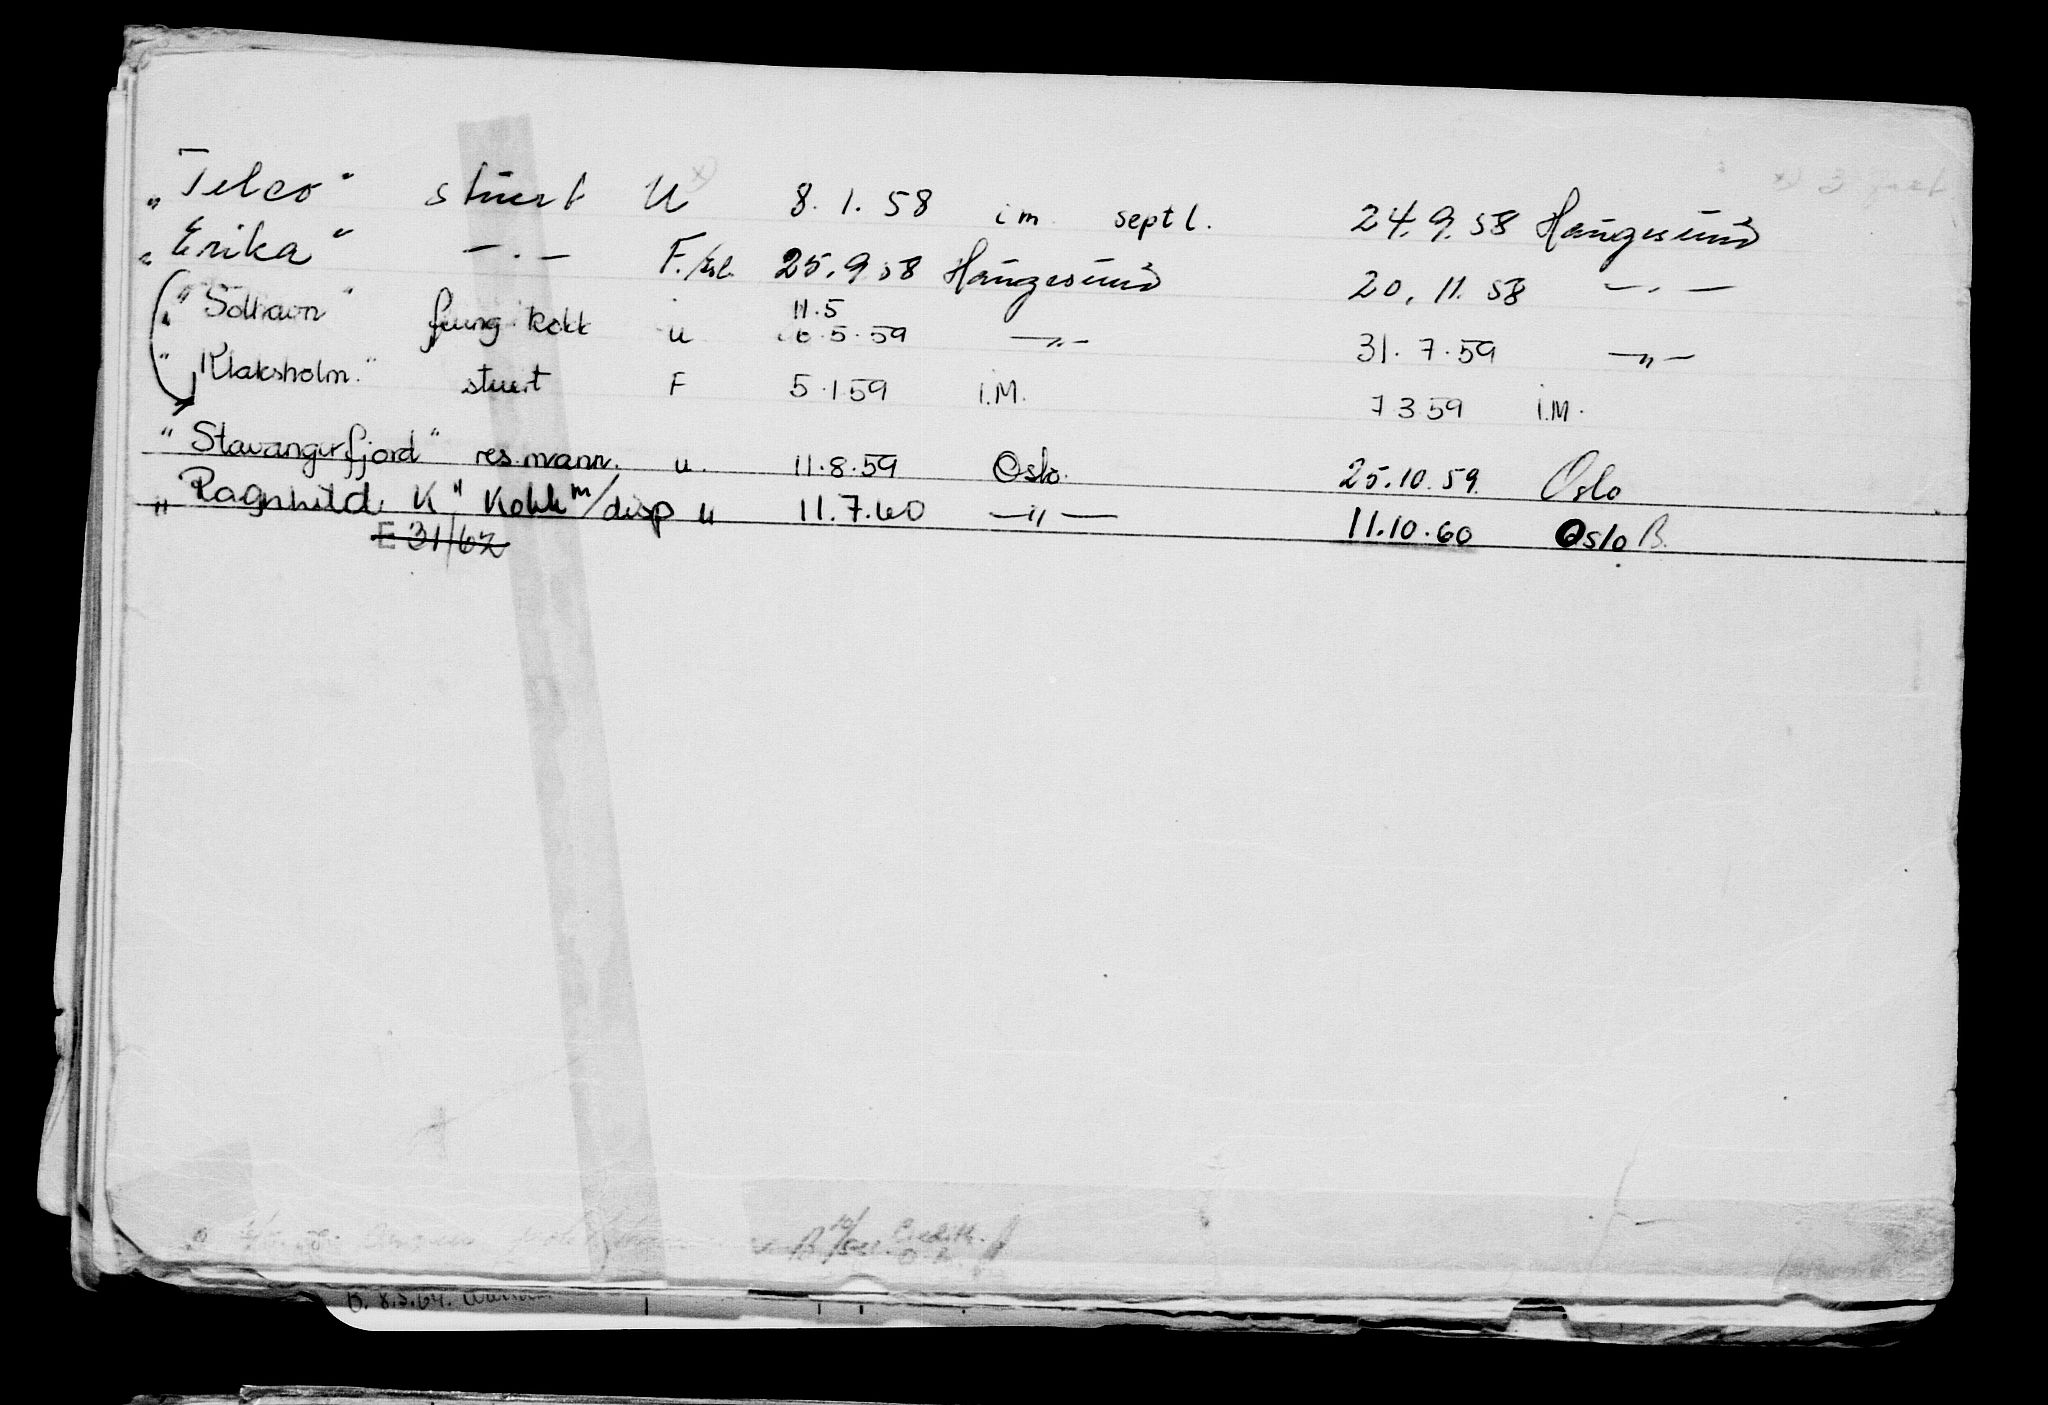 „Telco" stuert U x) 8.1.58 im septl. 24.9.58 Haugesund
„Erika" — . — F./ 25.9.58 Haugesund 20.11.58 — . —
"Solhavn" fung. kokk u 11.5
5.59 —„— 31.7.59 —„—
"Klaksholm." stuert F 5.1 59 i.M. 7 3 59 i.M.
"Stavangerfjord" res.mann. u. 11.8.59 Oslo. 25.10.59. Oslo
"Ragnhild K" Kokk m/disp u 11.7.60 —„— 11.10.60 Oslo B.
E 31/62
8.5.64.